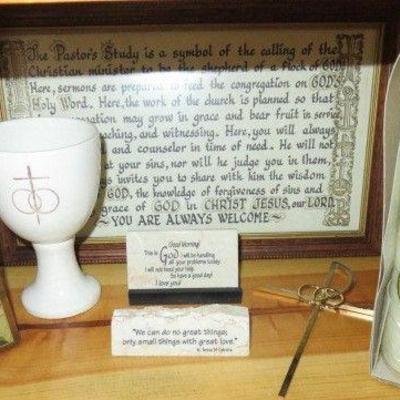 The Pastor's Study is a symbol of the calling of the
Christian minister to be the shepherd of a flock of GOD.
Here, sermons are prepared to feed the congregation on GOD'S
Holy Word. Here, the work of the church is planned so that
congregation may grow in grace and bear fruit in service
teaching, and witnessing. Here, you will always
and counselor in time of need. He will not
at your sins, nor will he judge you in them,
invites you to share with him the wisdom
GOD, the knowledge of forgiveness of sins and
grace of GOD in CHRIST JESUS, our LORD.
~YOU ARE ALWAYS WELCOME~
Good Morning!
This is God. I will be handling
all your problems today.
I will not need your help.
So have a good day!
I love you!
"We can do no great things;
only small things with great love."